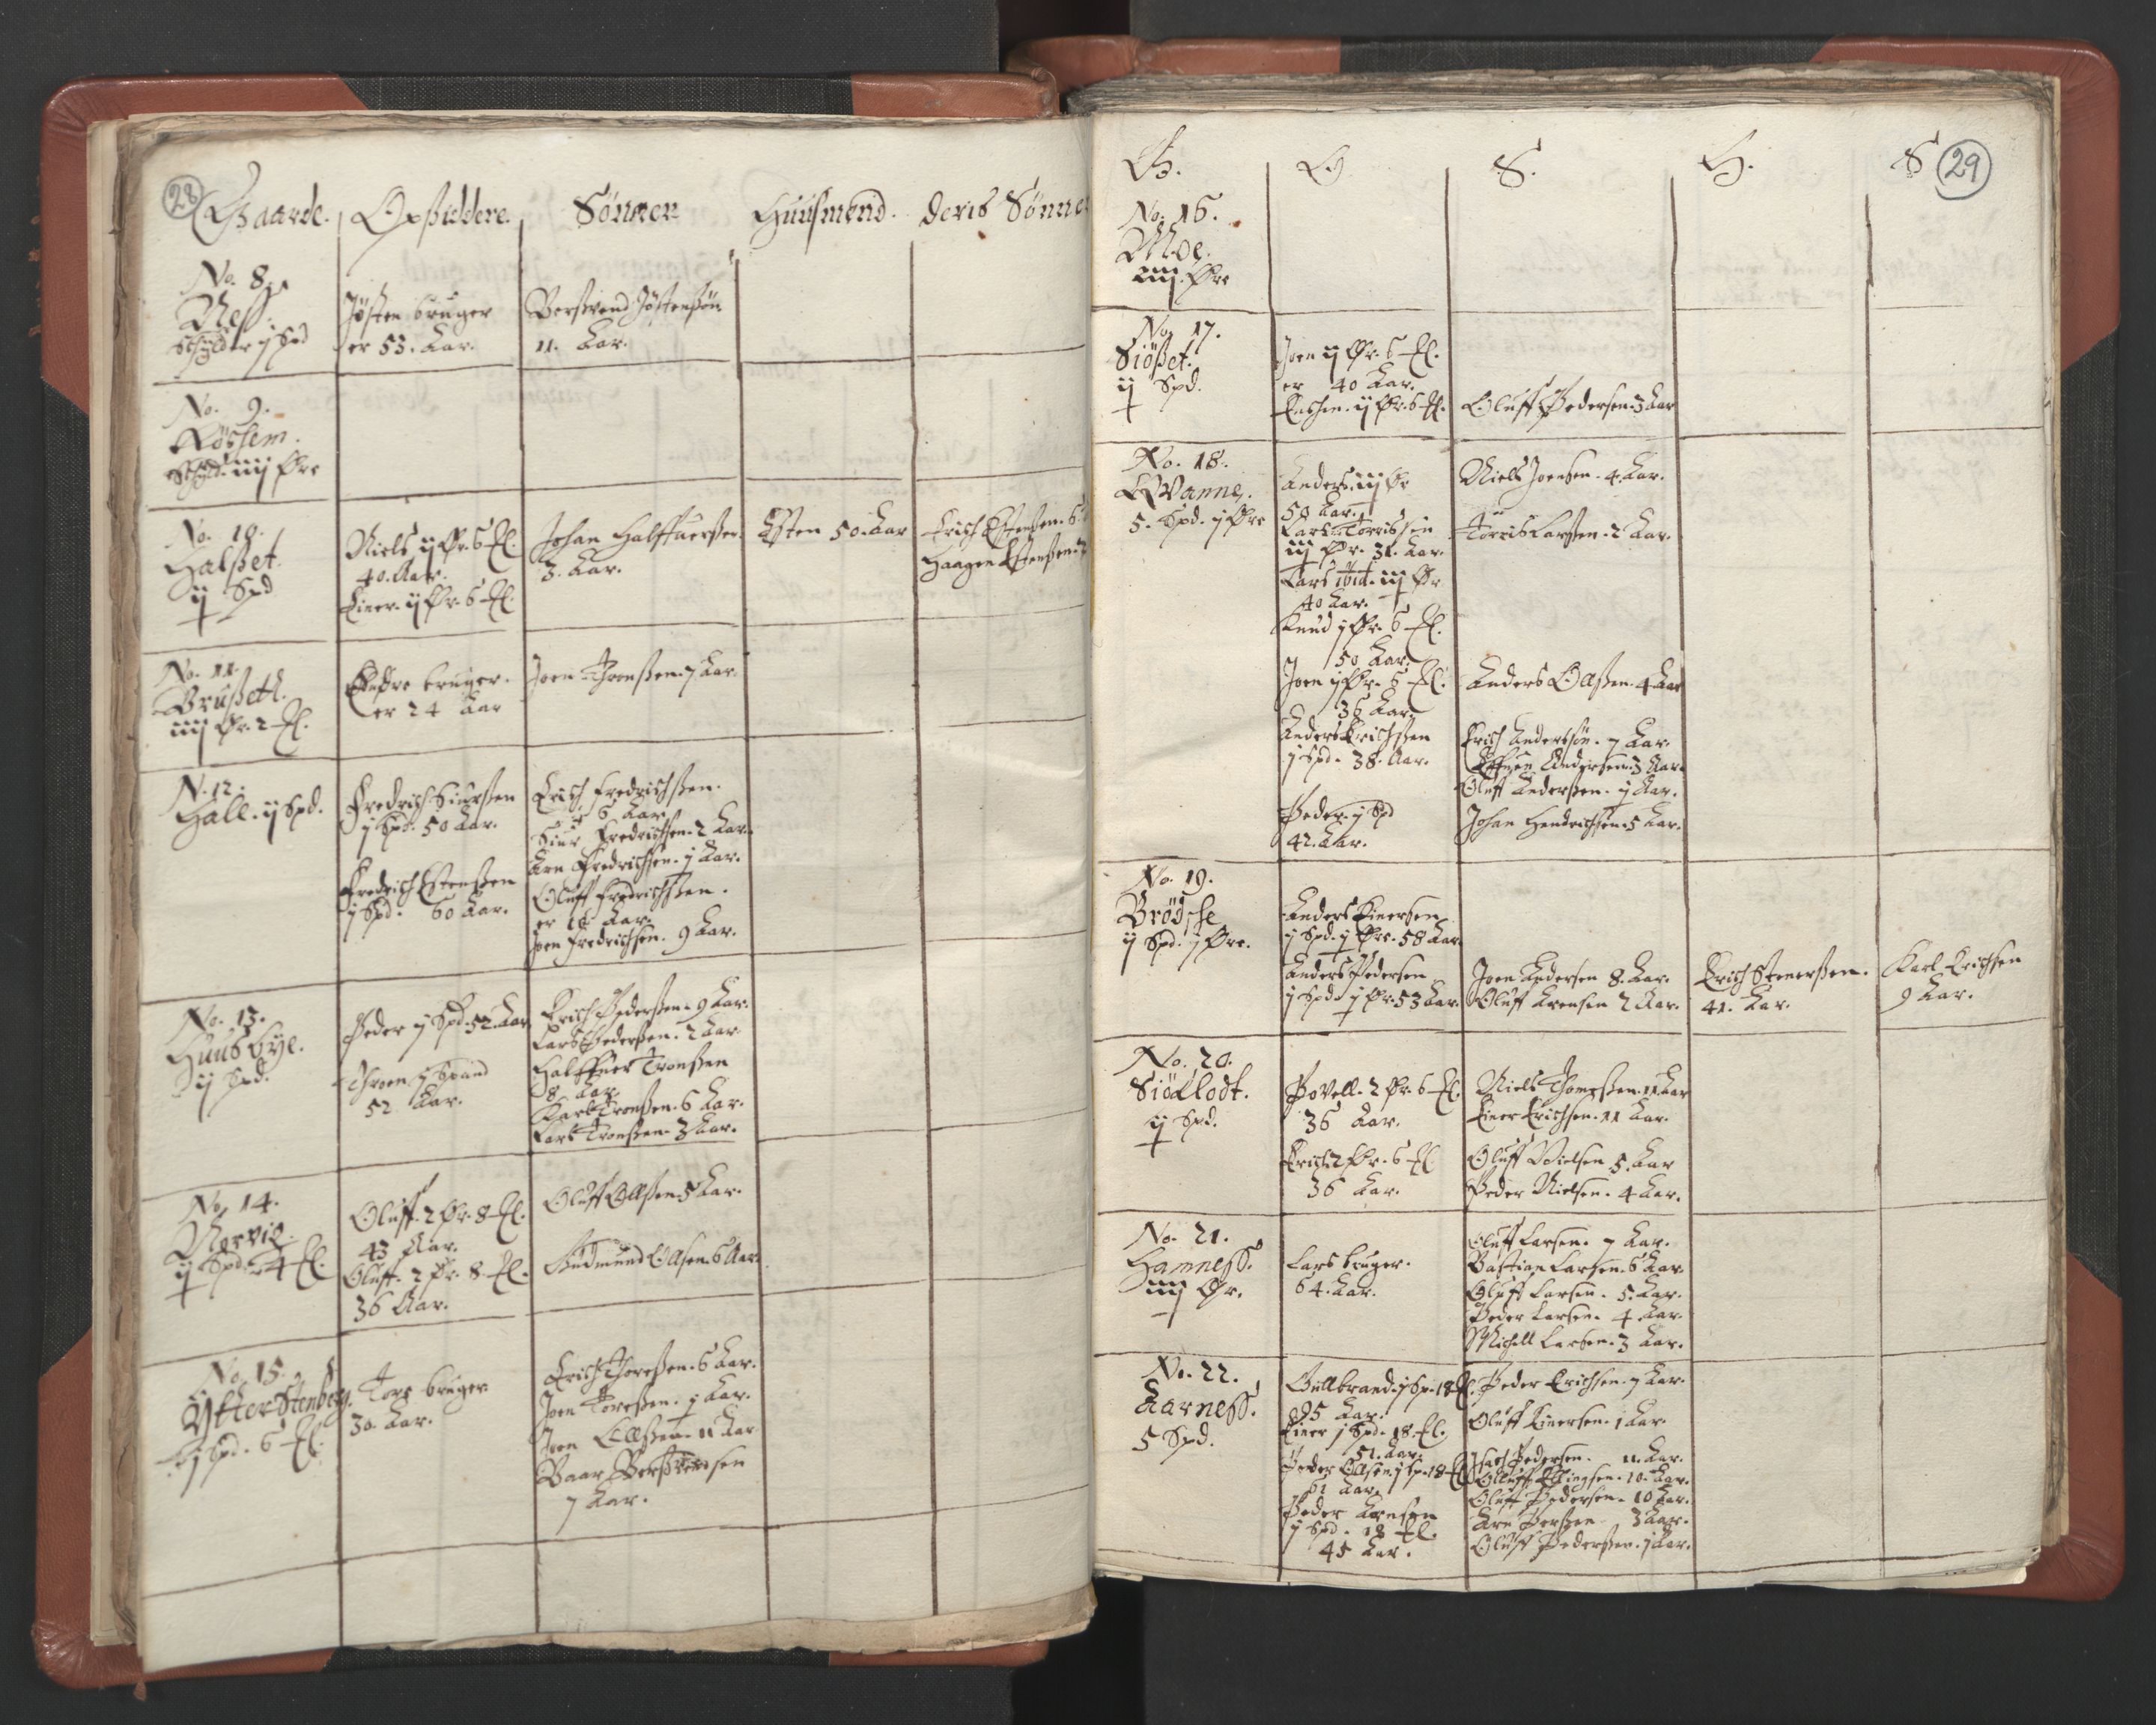 28
Gaarde. Opsiddere. Sønner Huusmend. deris Sønner
No. 8.
Ness.
Schylder ij Spd
Josten bruger
er 53. Aar.
Bersvend Jostensøn
11. Aar.
No. 9.
Røshem.
Schyld. iiij Øre
No. 10.
Halset.
ij Spd
Niels ij Ør. 6 Ml.
40. Aar.
Einer. ij Ør. 6 Ml.
Johan Halffuersen
3. Aar.
Esten 50. Aar
Erich Estensen. 6
Haagen Estensen.
No. 11.
Bruseth.
iiij Ør. 2 Ml.
Endre bruger.
er 24 Aar
Joen Thronsen. 7 Aar.
N. 12.
Hall. ij Spd.
Fredrich Siursen
j Spd. 50 Aar.
Fredrich Estensen
j Spd. 60 Aar.
Erich Fredrichsen.
er 6 Aar.
Siur Fredrichsen. 2 Aar.
Arn Fredrichsen. j Aar.
Oluff Fredrichsen.
er 10 Aar.
Joen Fredrichsen. 9 Aar.
No. 13.
Huusbye.
ij Spd.
Peder j Spd. 52. Aar
Throen j Spand
52 Aar.
Erich Pedersen. 9 Aar.
Lars Pedersen. 2 Aar.
Halffuer Tronsen
8 Aar.
Karl Tronsen. 6 Aar.
Lars Tronsen. 3 Aar.
No. 14.
Norvig.
ij Spd. 4 Ml.
Oluff. 2 Ør. 8 Ml.
43 Aar.
Oluff. 2 Ør. 8 Ml.
36 Aar.
Oluff Olsen 5 Aar.
Gudmund Olsen. 6 Aar.
No. 15.
Ytter Stenberg.
j Spd. 6 Ml.
Tore bruger
30. Aar.
Erich Thoresen. 6 Aar.
Joen Toresen. j Aar.
Joen Ellsen. 11 Aar
Baar Bersvensen
7 Aar.
29
G. O S. H. S
No. 16.
Moe.
iiij. Øre
No. 17.
Siøset.
ij Spd.
Joen ij Ør. 6 Ml.
er 40 Aar.
Enchen. ij Ør. 6 Ml.
Oluff Pedersen. 3 Aar
No. 18.
Qvanne.
5. Spd. ij Øre
Anders. iij Ør
50 Aar.
Lars Torrissen
iij Ør. 31. Aar.
Lars ibid. iij Ør
40 Aar.
Knud j Ør. 6 Ml.
50 Aar.
Joen j Ør. 6 Ml.
36 Aar.
Anders Erichsen
j Spd. 38. Aar.
Peder. j Spd
42. Aar.
Niels Joensen. 4. Aar.
Torris Larsen. 2 Aar.
Anders Olsen. 4 Aar
Erich Andersøn. 7 Aar.
Effuen Andersen. 3 Aar.
Oluff Andersen. ij Aar.
Johan Hendrichsen. 5 Aar.
No. 19.
Brøsche
ij Spd. ij Øre.
Anders Einersen
j Spd. j Øre. 58 Aar.
Anders Pedersen
j Spd. j Ør. 53 Aar.
Joen Andersen 8. Aar.
Oluff Arensen 2 Aar.
Erich Stenersen.
41. Aar.
Karl Erichsen
9 Aar.
No. 20.
Siøflodt.
ij Spd.
Povell. 2 Ør. 6 Ml.
36 Aar.
Erich 2 Ør. 6 Ml
36 Aar.
Niels Thomesen. 11 Aar
Einer Erichsen. 11 Aar.
Oluff Nielsen 5. Aar
Peder Nielsen. 4 Aar.
No. 21.
Hamness.
iiij Ør.
Lars bruger.
64. Aar.
Oluff Larsen. 7 Aar.
Bastian Larsen. 6 Aar
Oluff Larsen. 5. Aar.
Peder Larsen. 4 Aar.
Michell Larsen. 3 Aar.
No. 22.
Aarness.
5 Spd.
Gullbrand. j Sp. 18 Ml.
Einer j Spd. 18. Ml.
51. Aar.
Peder Olsen. j Sp. 18 Ml
61 Aar.
Peder Arensen
j Spd. 18 Ml.
45 Aar.
Peder Erichsen. 7 Aar.
Oluff Einersen. 1 Aar.
Isach Pedersen. 11. Aar.
Oluff Ellingsen. 10. Aar.
Oluff Pedersen. 10 Aar.
Arn Persen 3 Aar.
Oluff Pedersen. j Aar.